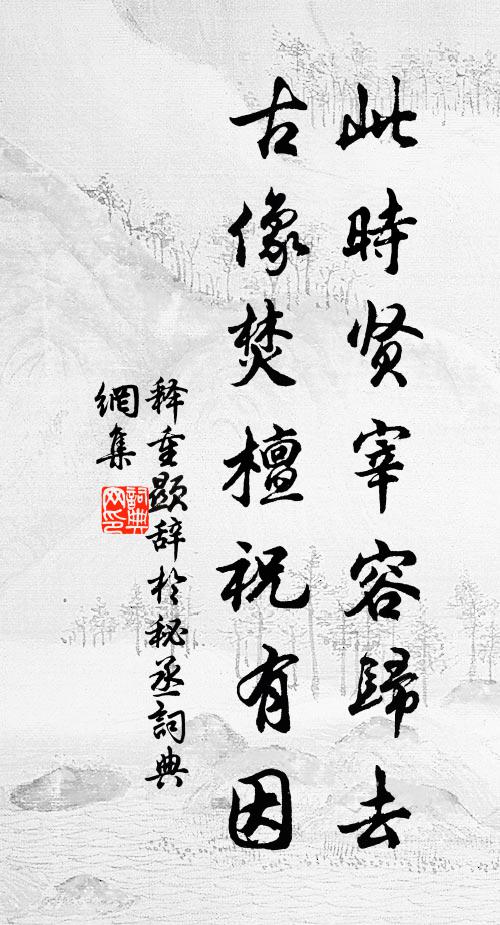 此時贤宰容歸去
古像焚檀祝有因
释重顯辞於秘丞詞典
網集
詞典
网印